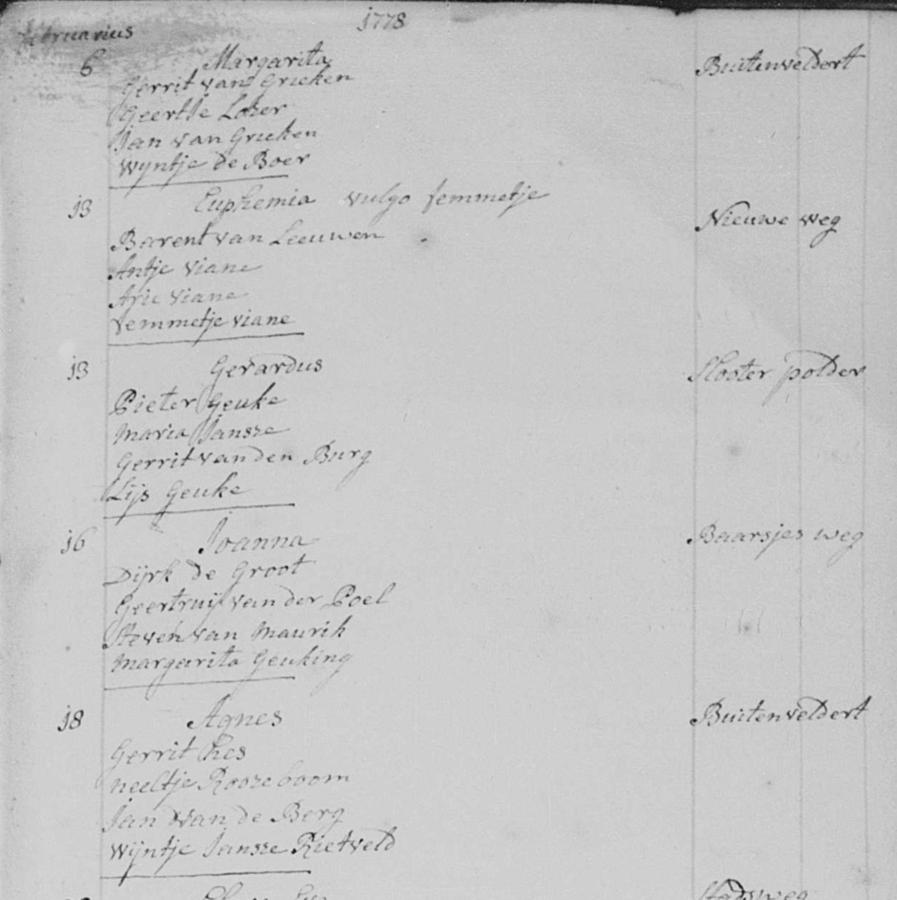 februarius 1778
6 Margarita Buitenveldert
Gerrit van Grieken
Geertje Loker
Jan van Grieken
Wyntje de Boer
13 Euphemia vulgo femmetje Nieuwe weg
Barent van Leeuwen
Antje Viane
Arie Viane
femmetje viane
13 Gerardus Slooter polder
Pieter Geuke
Maria Jansze
Gerrit van den Burg
Lijs Geuke
16 Joanna Baarsjes weg
Dijrk de Groot
Geertruij van der Poel
Steven van Maurik
Margarita Geuking
18 Agnes Buitenveldert
Gerrit Kes
Neeltje Roozeboom
Jan van de Berg
Wijntje Jansze Rietveld